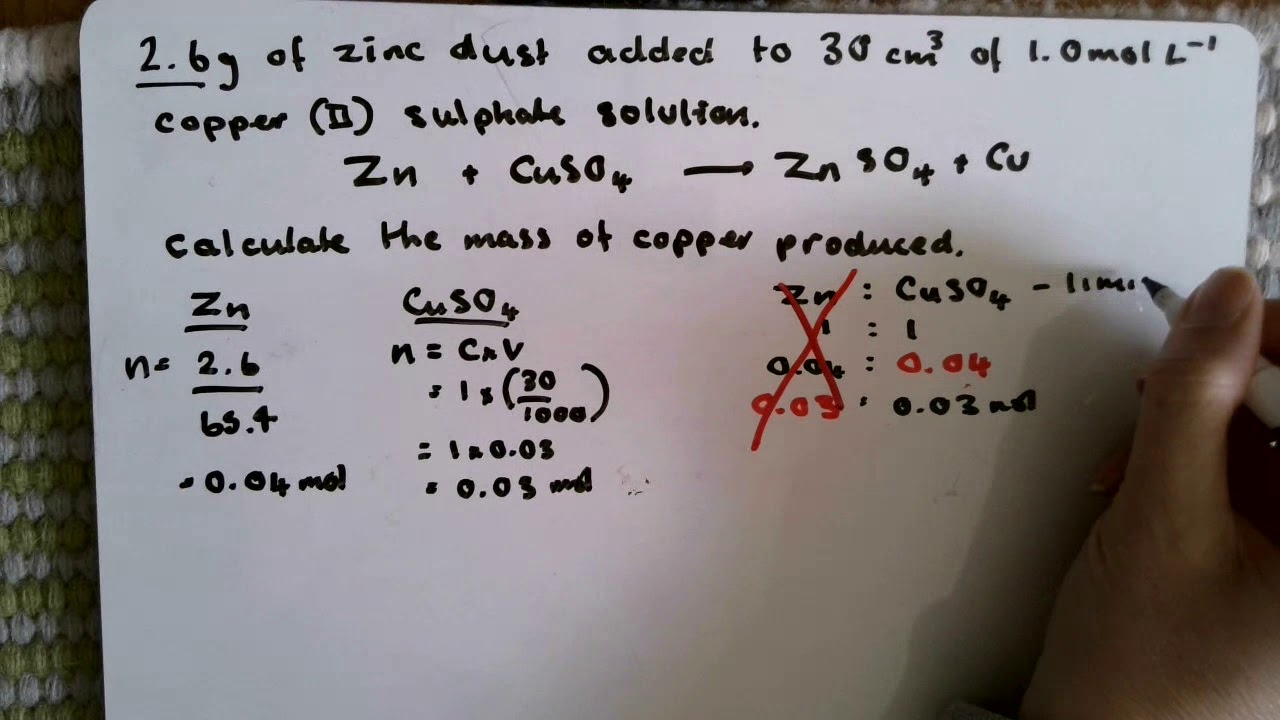 2.6g of zinc dust added to 30 cm³ of 1.0mol L⁻¹
copper (II) sulphate solution.
Zn + CuSO₄ → ZnSO₄ + Cu
calculate the mass of copper produced.
Zn
n= 2.6
65.4
= 0.04 mol
CuSO₄
n = C x V
= 1 x (30/1000)
= 1 x 0.03
= 0.03 mol
Zn : CuSO₄ - limi
1 : 1
0.04 : 0.04
0.03 : 0.03 mol